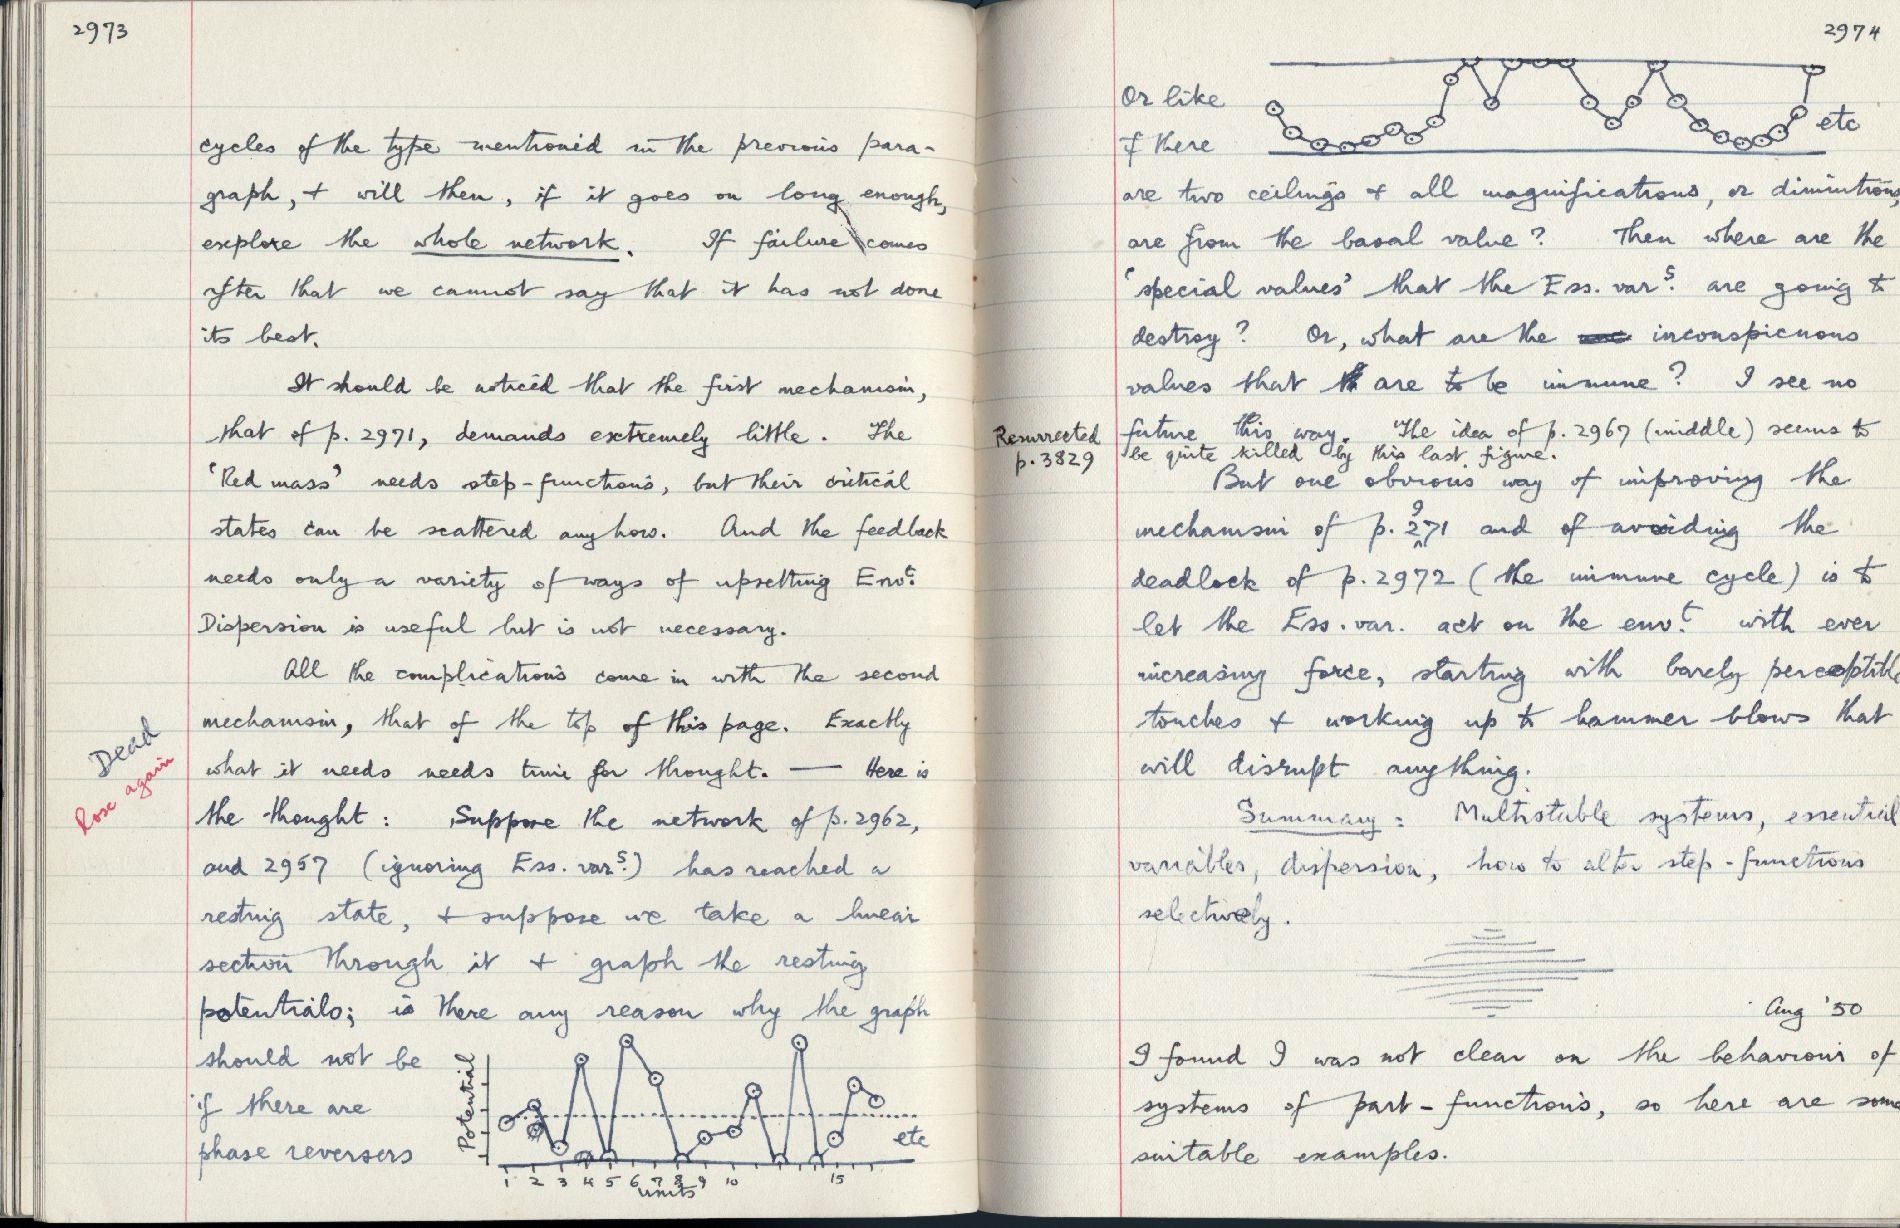 2973
cycles of the type mentioned in the previous para-
graph, + will then, if it goes on long enough,
explore the whole network. If failure comes
after that we cannot say that it has not done
its best.
It should be noticed that the first mechanism,
that of p. 2971, demands extremely little. The
'Red mass' needs step-functions, but their critical
states can be scattered anyhow. And the feedback
needs only a variety of ways of upsetting Envt.
Dispersion is useful but is not necessary.
All the complications come in with the second
mechanism, that of the top of this page. Exactly
Dead
Rose again
what it needs needs time for thought. — Here is
the thought: Suppose the network of p. 2962,
and 2957 (ignoring Ess. vars.) has reached a
resting state, + suppose we take a linear
section through it + graph the resting
potentials; is there any reason why the graph
should not be
if there are
phase reversers
Potential
etc
1 2 3 4 5 6 7 8 9 10 15
units
2974
Or like
if there
etc
are two ceilings + all magnifications, or diminutions,
are from the basal value? Then where are the
'special values' that the Ess. vars. are going to
destroy? Or, what are the inconspicuous
values that are to be immune? I see no
Resurrected
p. 3829
future this way. The idea of p. 2967 (middle) seems to
be quite killed by this last figure.
But one obvious way of improving the
mechanism of p. 2971 and of avoiding the
deadlock of p. 2972 (the immune cycle) is to
let the Ess. var. act on the envt. with ever
increasing force, starting with barely perceptible
touches + working up to hammer blows that
will disrupt anything.
Summary: Multistable systems, essential
variables, dispersion, how to alter step-functions
selectively.
Aug '50
I found I was not clear on the behaviour of
systems of part-functions, so here are some
suitable examples.